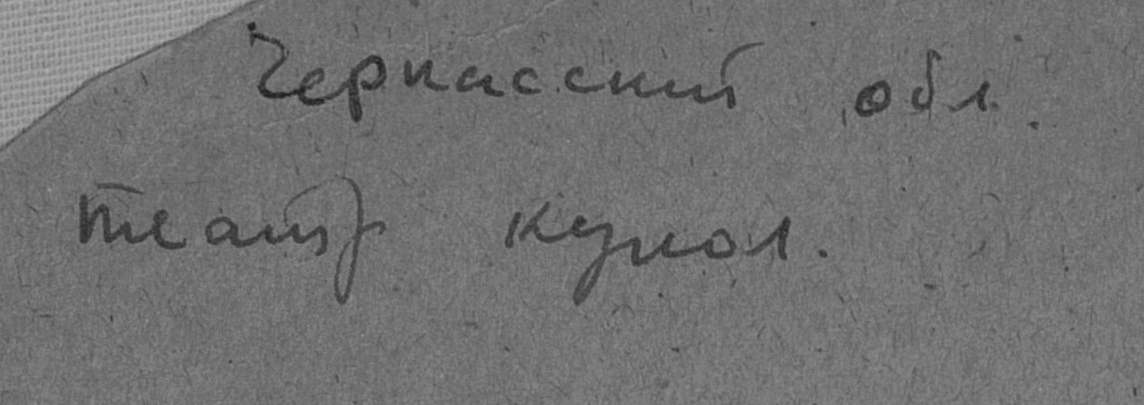 Черкасский обл.
театр кукол.